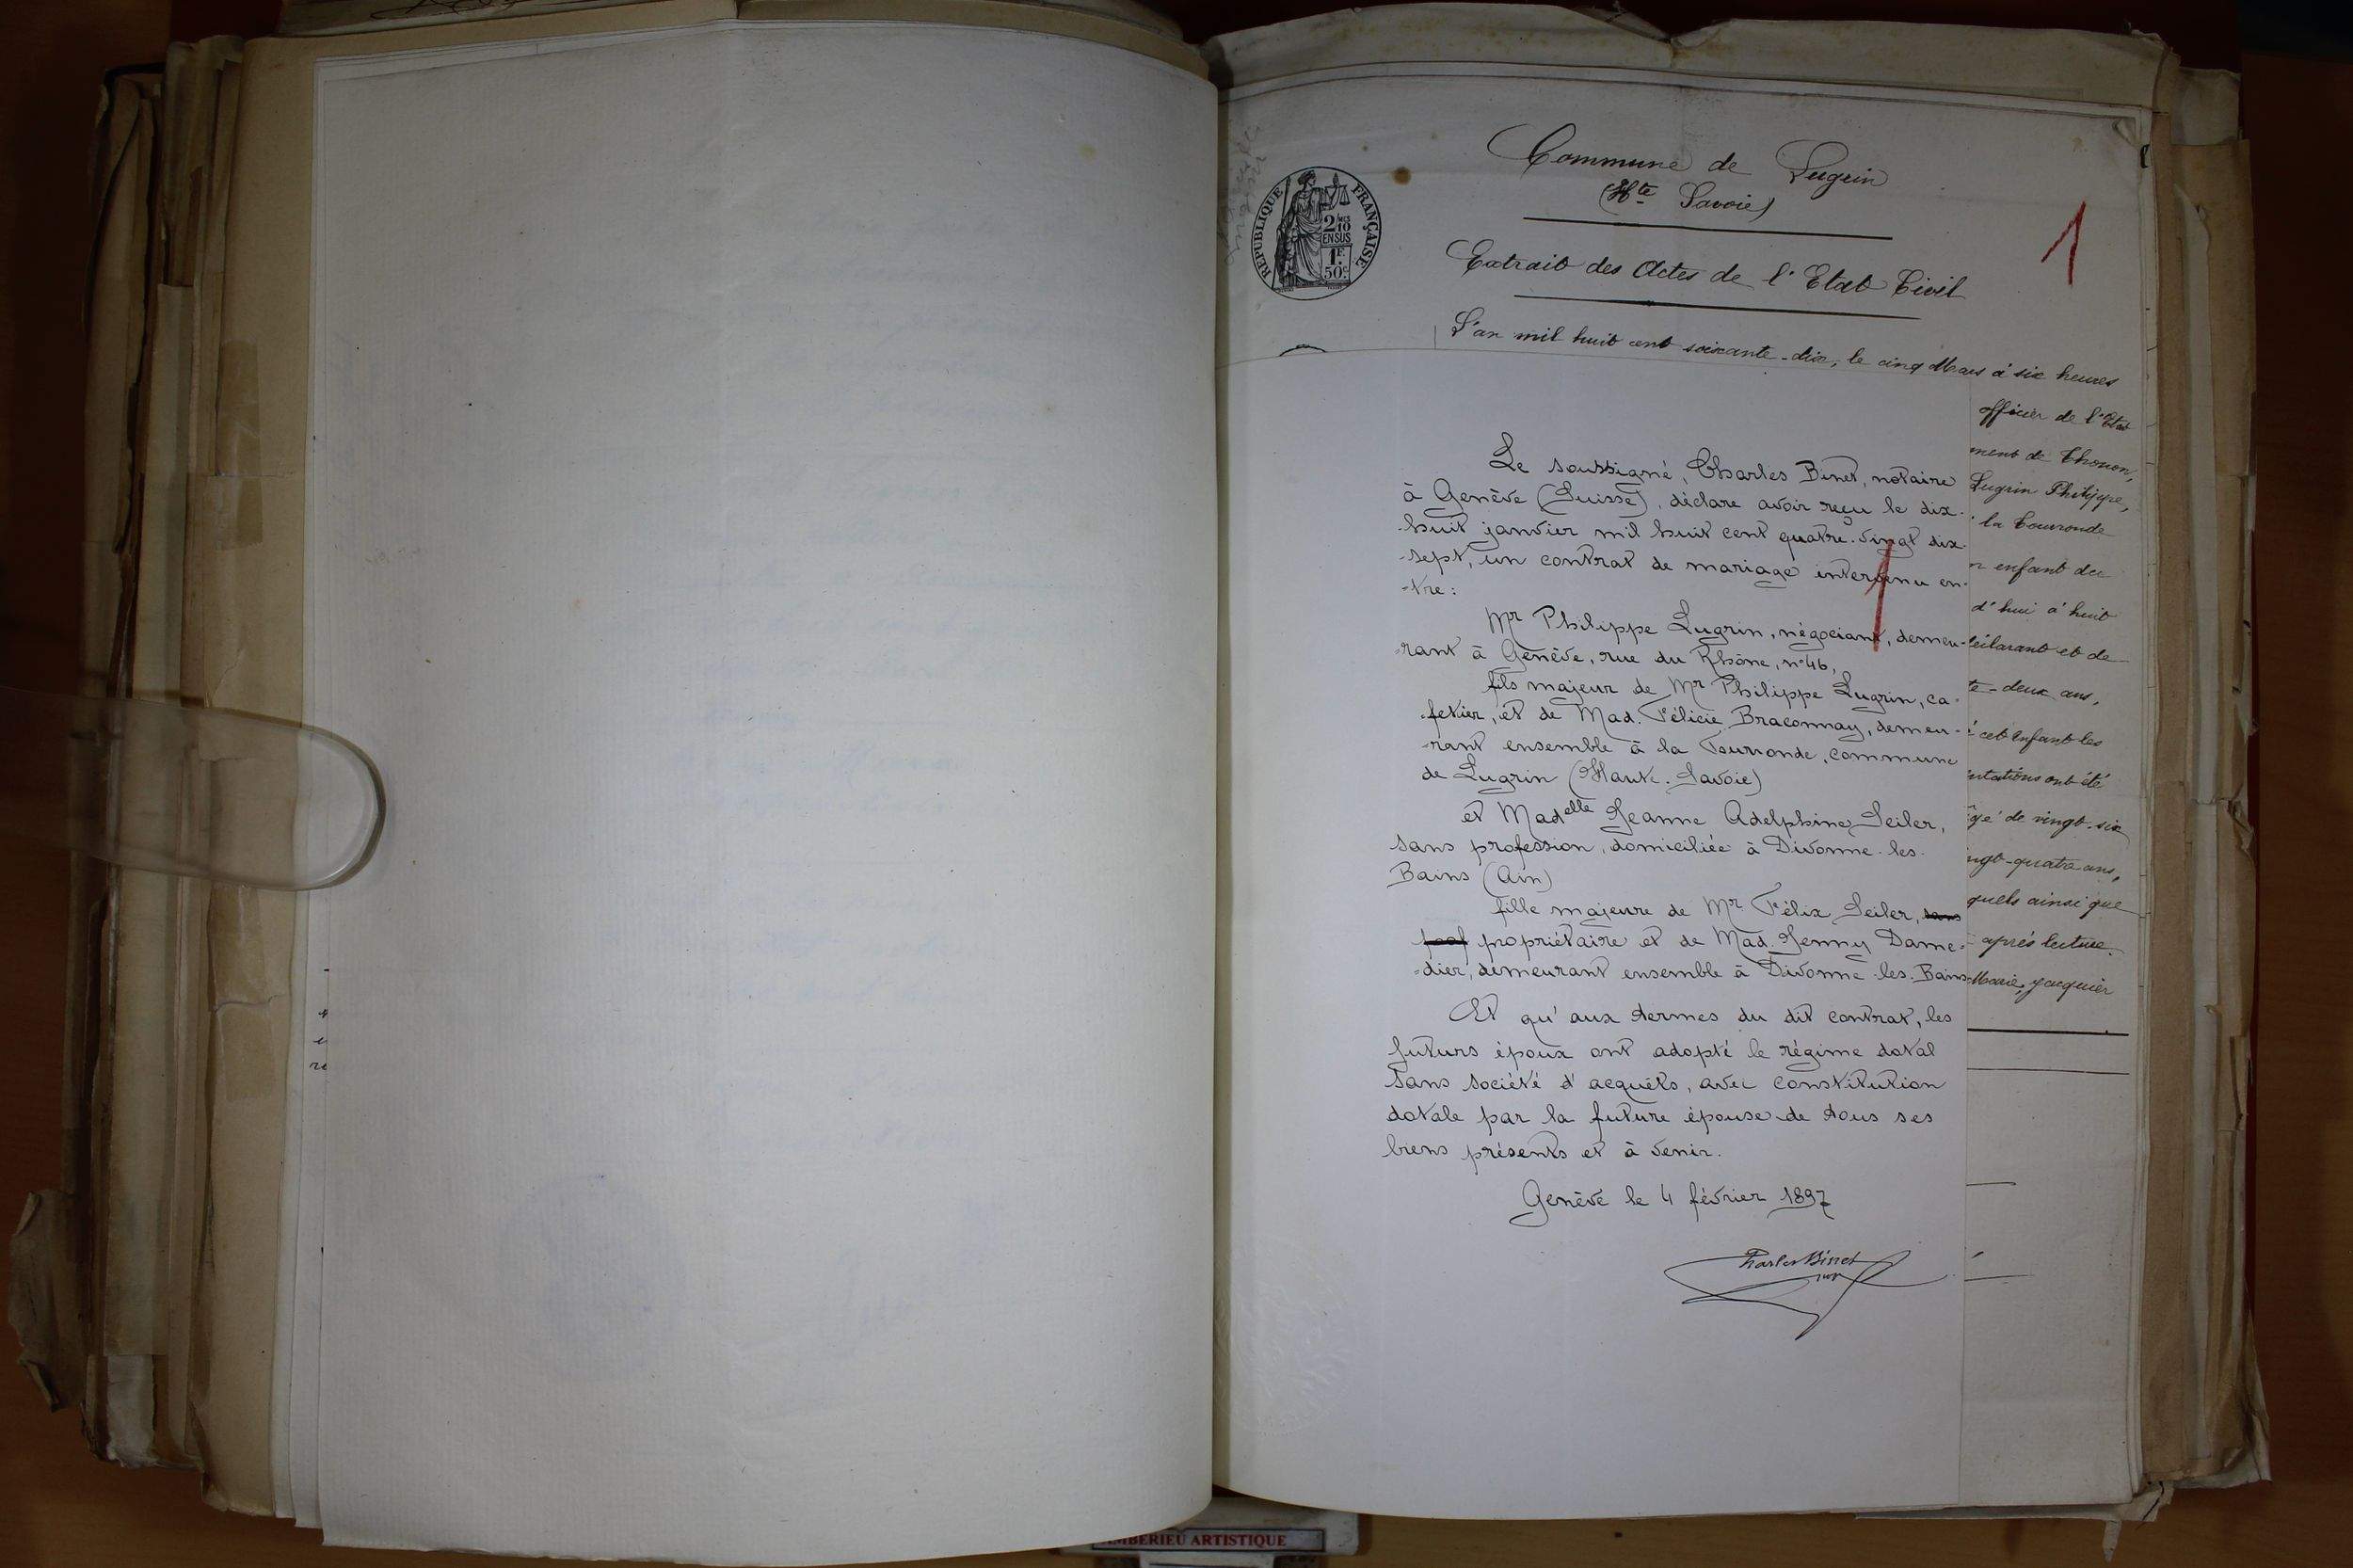 Commune de Lugrin
(Hte Savoie)
RÉPUBLIQUE FRANÇAISE
2/10
EN SUS
1F
50c
1
Extrait des Actes de l'Etat Civil
L'an mil huit cent soixante-dix, le cinq Mars à six heures
officier de l'Etat
ment de Thonon,
Lugrin Philippe,
la Tourronde
enfant du
d'hui à huit
déclarant et de
te-deux ans,
cet enfant les
ntations ont été
âgé de vingt-six
ingt-quatre ans,
quels ainsi que
après lecture.
Marie, Jacquier
Le soussigné, Charles Binet, notaire
à Genève (Suisse), déclare avoir reçu le dix-
-huit janvier mil huit cent quatre-vingt dix-
-sept, un contrat de mariage intervenu en-
-tre:
1
Mr Philippe Lugrin, négociant, demeu-
-rant à Genève, rue du Rhône, n°46,
fils majeur de Mr Philippe Lugrin, ca-
-fetier, et de Mad. Félicie Braconnay, demeu-
-rant ensemble à la Tourronde, commune
de Lugrin (Haute-Savoie)
et Madelle Jeanne Adelphine Seiler,
sans profession, domiciliée à Divonne-les-
Bains (Ain)
fille majeure de Mr Félix Seiler, sans
prof propriétaire et de Mad. Jenny Dame-
-dier, demeurant ensemble à Divonne-les-Bains
Et qu'aux termes du dit contrat, les
futurs époux ont adopté le régime dotal
sans société d'acquêts, avec constitution
dotale par la future épouse de tous ses
biens présents et à venir.
Genève le 4 février 1897
Charles Binet
not
MBERIEU ARTISTIQUE